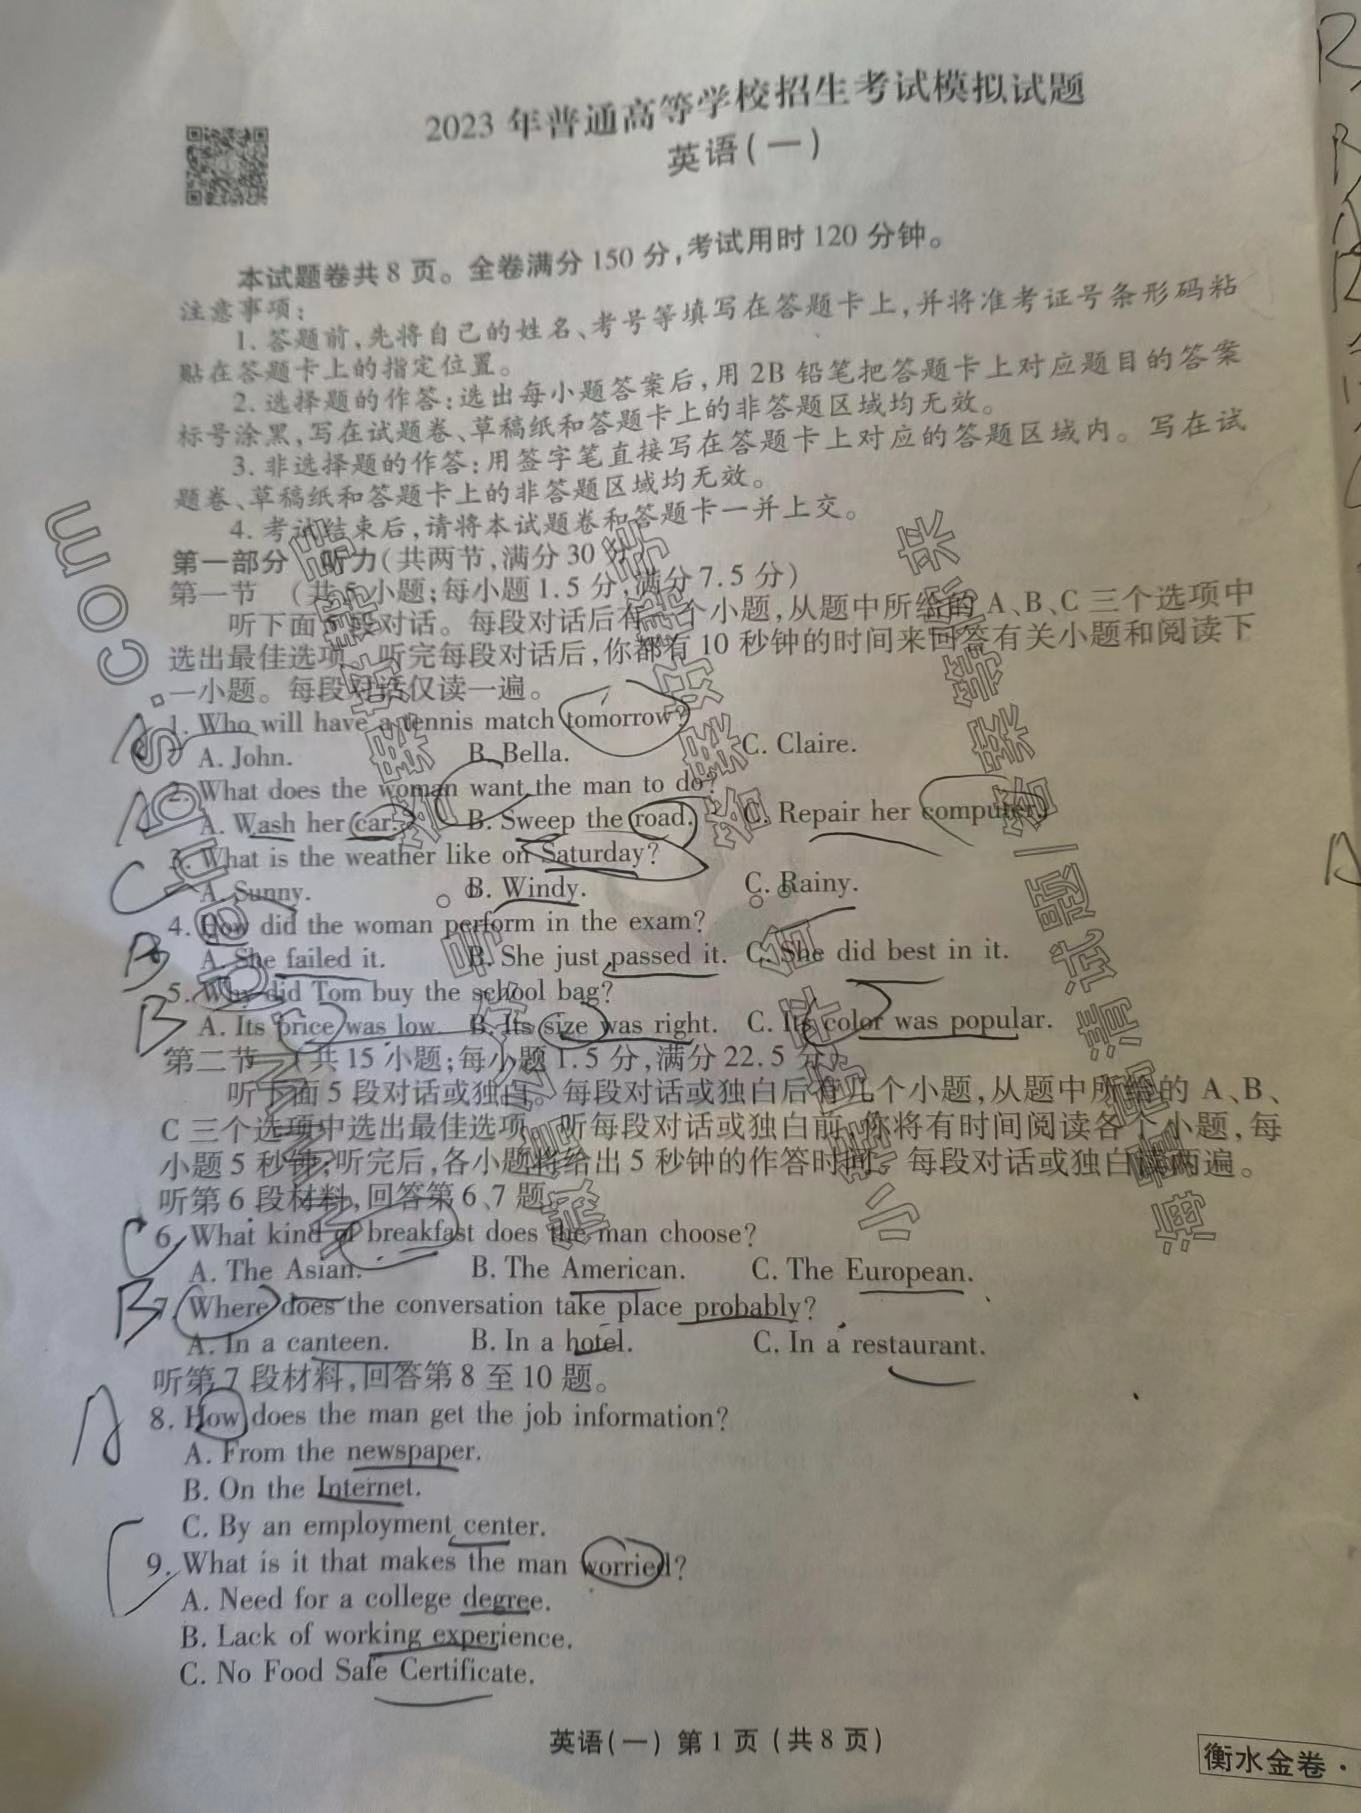 2023年普通高等学校招生考试模拟试题
英语(一)
本试题卷共8页。全卷满分150分,考试用时120分钟。
注意事项:
1.答题前,先将自己的姓名、考号等填写在答题卡上,并将准考证号条形码粘
贴在答题卡上的指定位置。
2.选择题的作答:选出每小题答案后,用2B铅笔把答题卡上对应题目的答案
标号涂黑,写在试题卷、草稿纸和答题卡上的非答题区域均无效。
3.非选择题的作答:用签字笔直接写在答题卡上对应的答题区域内。写在试
题卷、草稿纸和答题卡上的非答题区域均无效。
4.考试结束后,请将本试题卷和答题卡一并上交。
第一部分 听力(共两节,满分30分)
第一节 (共5小题;每小题1.5分,满分7.5分)
听下面5段对话。每段对话后有一个小题,从题中所给的A、B、C三个选项中
选出最佳选项。听完每段对话后,你都有10秒钟的时间来回答有关小题和阅读下
一小题。每段对话仅读一遍。
A 1. Who will have a tennis match tomorrow?
A. John. B. Bella. C. Claire.
A 2. What does the woman want the man to do?
A. Wash her car. B. Sweep the road. C. Repair her computer.
C 3. What is the weather like on Saturday?
A. Sunny. B. Windy. C. Rainy.
4. How did the woman perform in the exam?
B A. She failed it. B. She just passed it. C. She did best in it.
5. Why did Tom buy the school bag?
B A. Its price was low. B. Its size was right. C. Its color was popular.
第二节 (共15小题;每小题1.5分,满分22.5分)
听下面5段对话或独白。每段对话或独白后有几个小题,从题中所给的A、B、
C三个选项中选出最佳选项。听每段对话或独白前,你将有时间阅读各个小题,每
小题5秒钟;听完后,各小题将给出5秒钟的作答时间。每段对话或独白读两遍。
听第6段材料,回答第6、7题。
C 6. What kind of breakfast does the man choose?
A. The Asian. B. The American. C. The European.
B 7. Where does the conversation take place probably?
A. In a canteen. B. In a hotel. C. In a restaurant.
听第7段材料,回答第8至10题。
A 8. How does the man get the job information?
A. From the newspaper.
B. On the Internet.
C. By an employment center.
C 9. What is it that makes the man worried?
A. Need for a college degree.
B. Lack of working experience.
C. No Food Safe Certificate.
英语(一) 第1页(共8页)
衡水金卷·